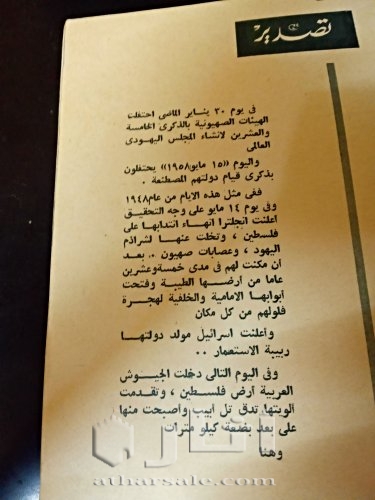 تصدير
فى يوم ٣٠ يناير الماضى احتفلت
الهيئات الصهيونية بالذكرى الخامسة
والعشرين لانشاء المجلس اليهودى
العالمى
واليوم «١٥ مايو ١٩٥٨» يحتفلون
بذكرى قيام دولتهم المصطنعة .
ففى مثل هذه الايام من عام ١٩٤٨
وفى يوم ١٤ مايو على وجه التحقيق
أعلنت انجلترا انهاء انتدابها على
فلسطين ، وتخلت عنها لشراذم
اليهود ، وعصابات صهيون .. بعد
أن مكنت لهم فى مدى خمسة وعشرين
عاما من أرضها الطيبة وفتحت
أبوابها الامامية والخلفية لهجرة
فلولهم من كل مكان
وأعلنت اسرائيل مولد دولتها
ربيبة الاستعمار ..
وفى اليوم التالى دخلت الجيوش
العربية أرض فلسطين ، وتقدمت
ألويتها تدق تل أبيب وأصبحت منها
على بعد بضعة كيلو مترات
وهنا
atharsale.com